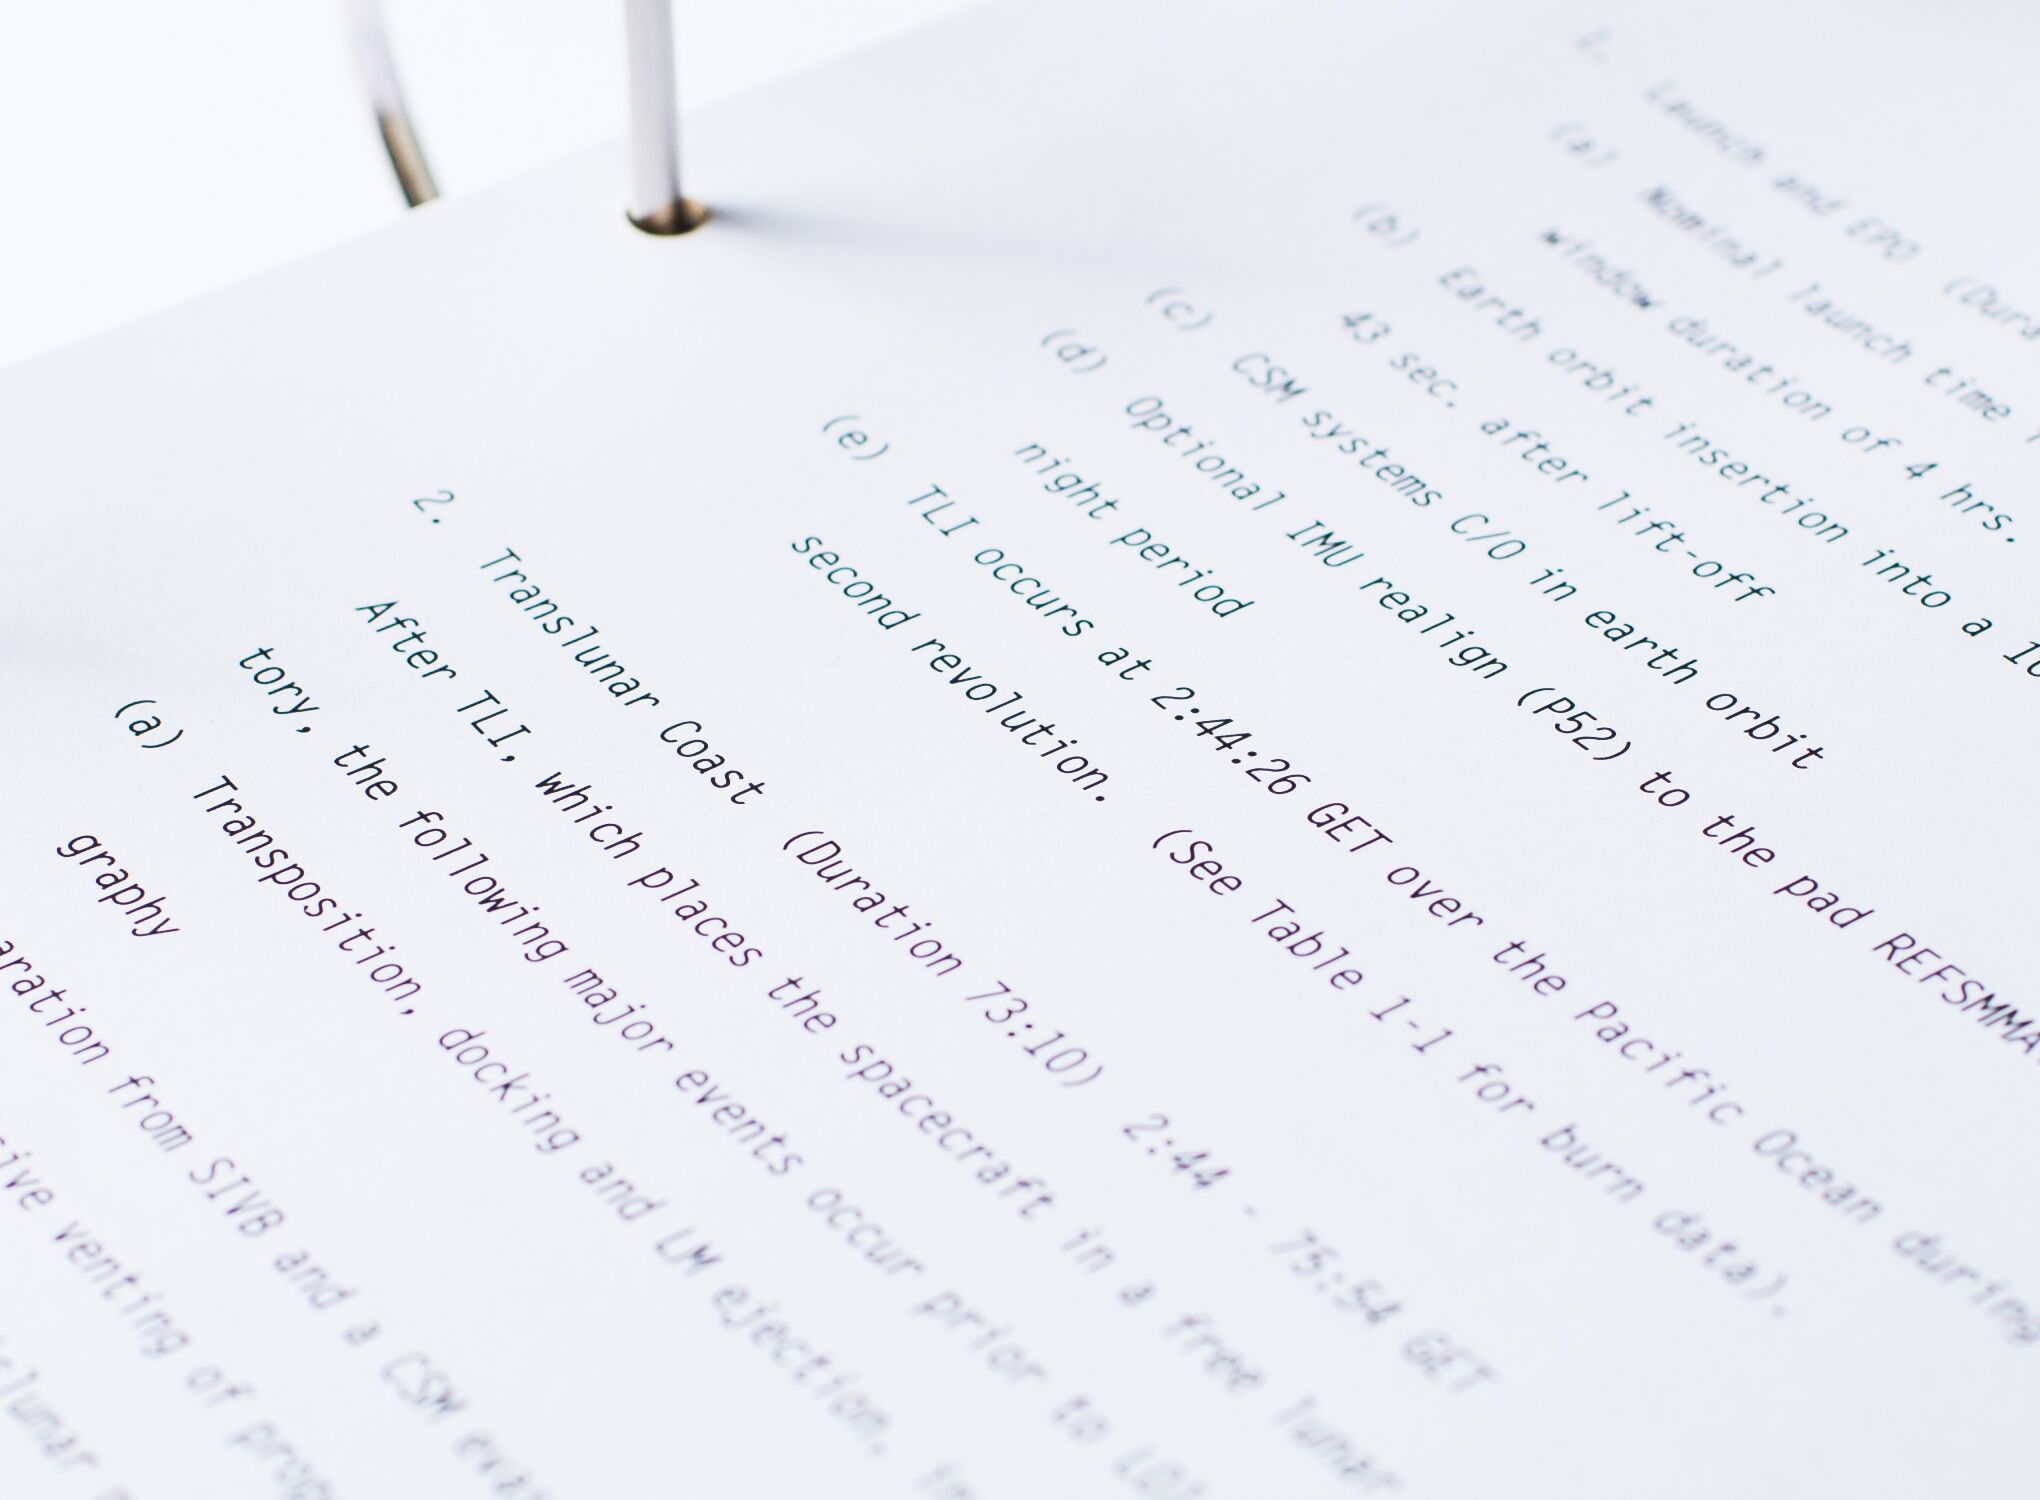 1. Launch and EPO (Dura
(a) Nominal launch time
window duration of 4 hrs.
(b) Earth orbit insertion into a 10
43 sec. after lift-off
(c) CSM systems C/O in earth orbit
(d) Optional IMU realign (P52) to the pad REFSMMA
night period
(e) TLI occurs at 2:44:26 GET over the Pacific Ocean during
second revolution. (See Table 1-1 for burn data).
2. Translunar Coast (Duration 73:10) 2:44 - 75:54 GET
After TLI, which places the spacecraft in a free lunar
tory, the following major events occur prior to LOI
(a) Transposition, docking and LM ejection,
graphy
aration from SIVB and a CSM
sive venting of
slunar